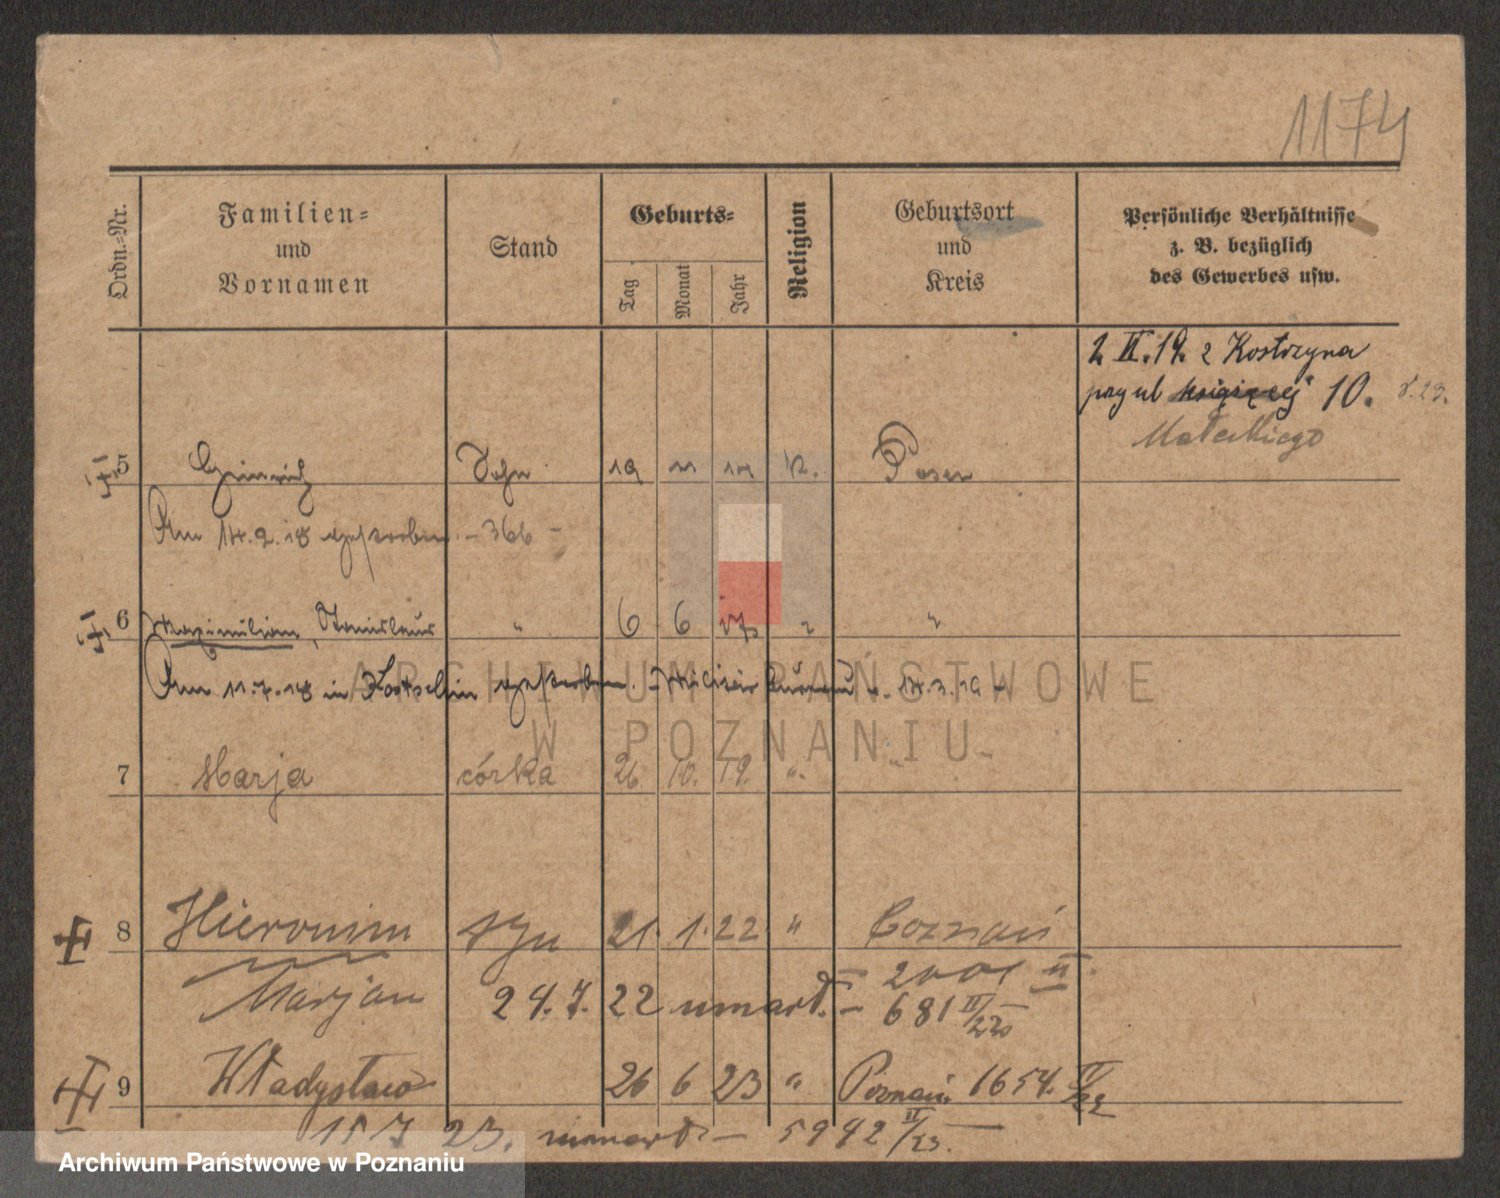 1174
Ordn.-Nr.
Familien-
und
Vornamen
Stand
Geburts-
Tag
Monat
Jahr
Religion
Geburtsort
und
Kreis
Persönliche Verhältnisse
z. B. bezüglich
des Gewerbes usw.
2 II. 19. z Kostrzyna
przy ul książęcej 10.
Małeckiego
5 Heinrich Sohn 19 11 14 K. Posen
Am 14.2.18 gestorben. - 366 -
6 Maximilian, Stanislaus " 6 6 " "
Am 11.7.18 in Kostschin gestorben.
7 Marja córka 26 10. 19. " "
8 Hieronim syn 21. 1. 22 " Poznań
2001 II
Marjan 24.7.22 umarł. - 681 II/22
9 Władysław 26 6 23 " Poznań 1654.
15 7 23. umarł - 5942 II/23.
ARCHIWUM PAŃSTWOWE
W POZNANIU
Archiwum Państwowe w Poznaniu